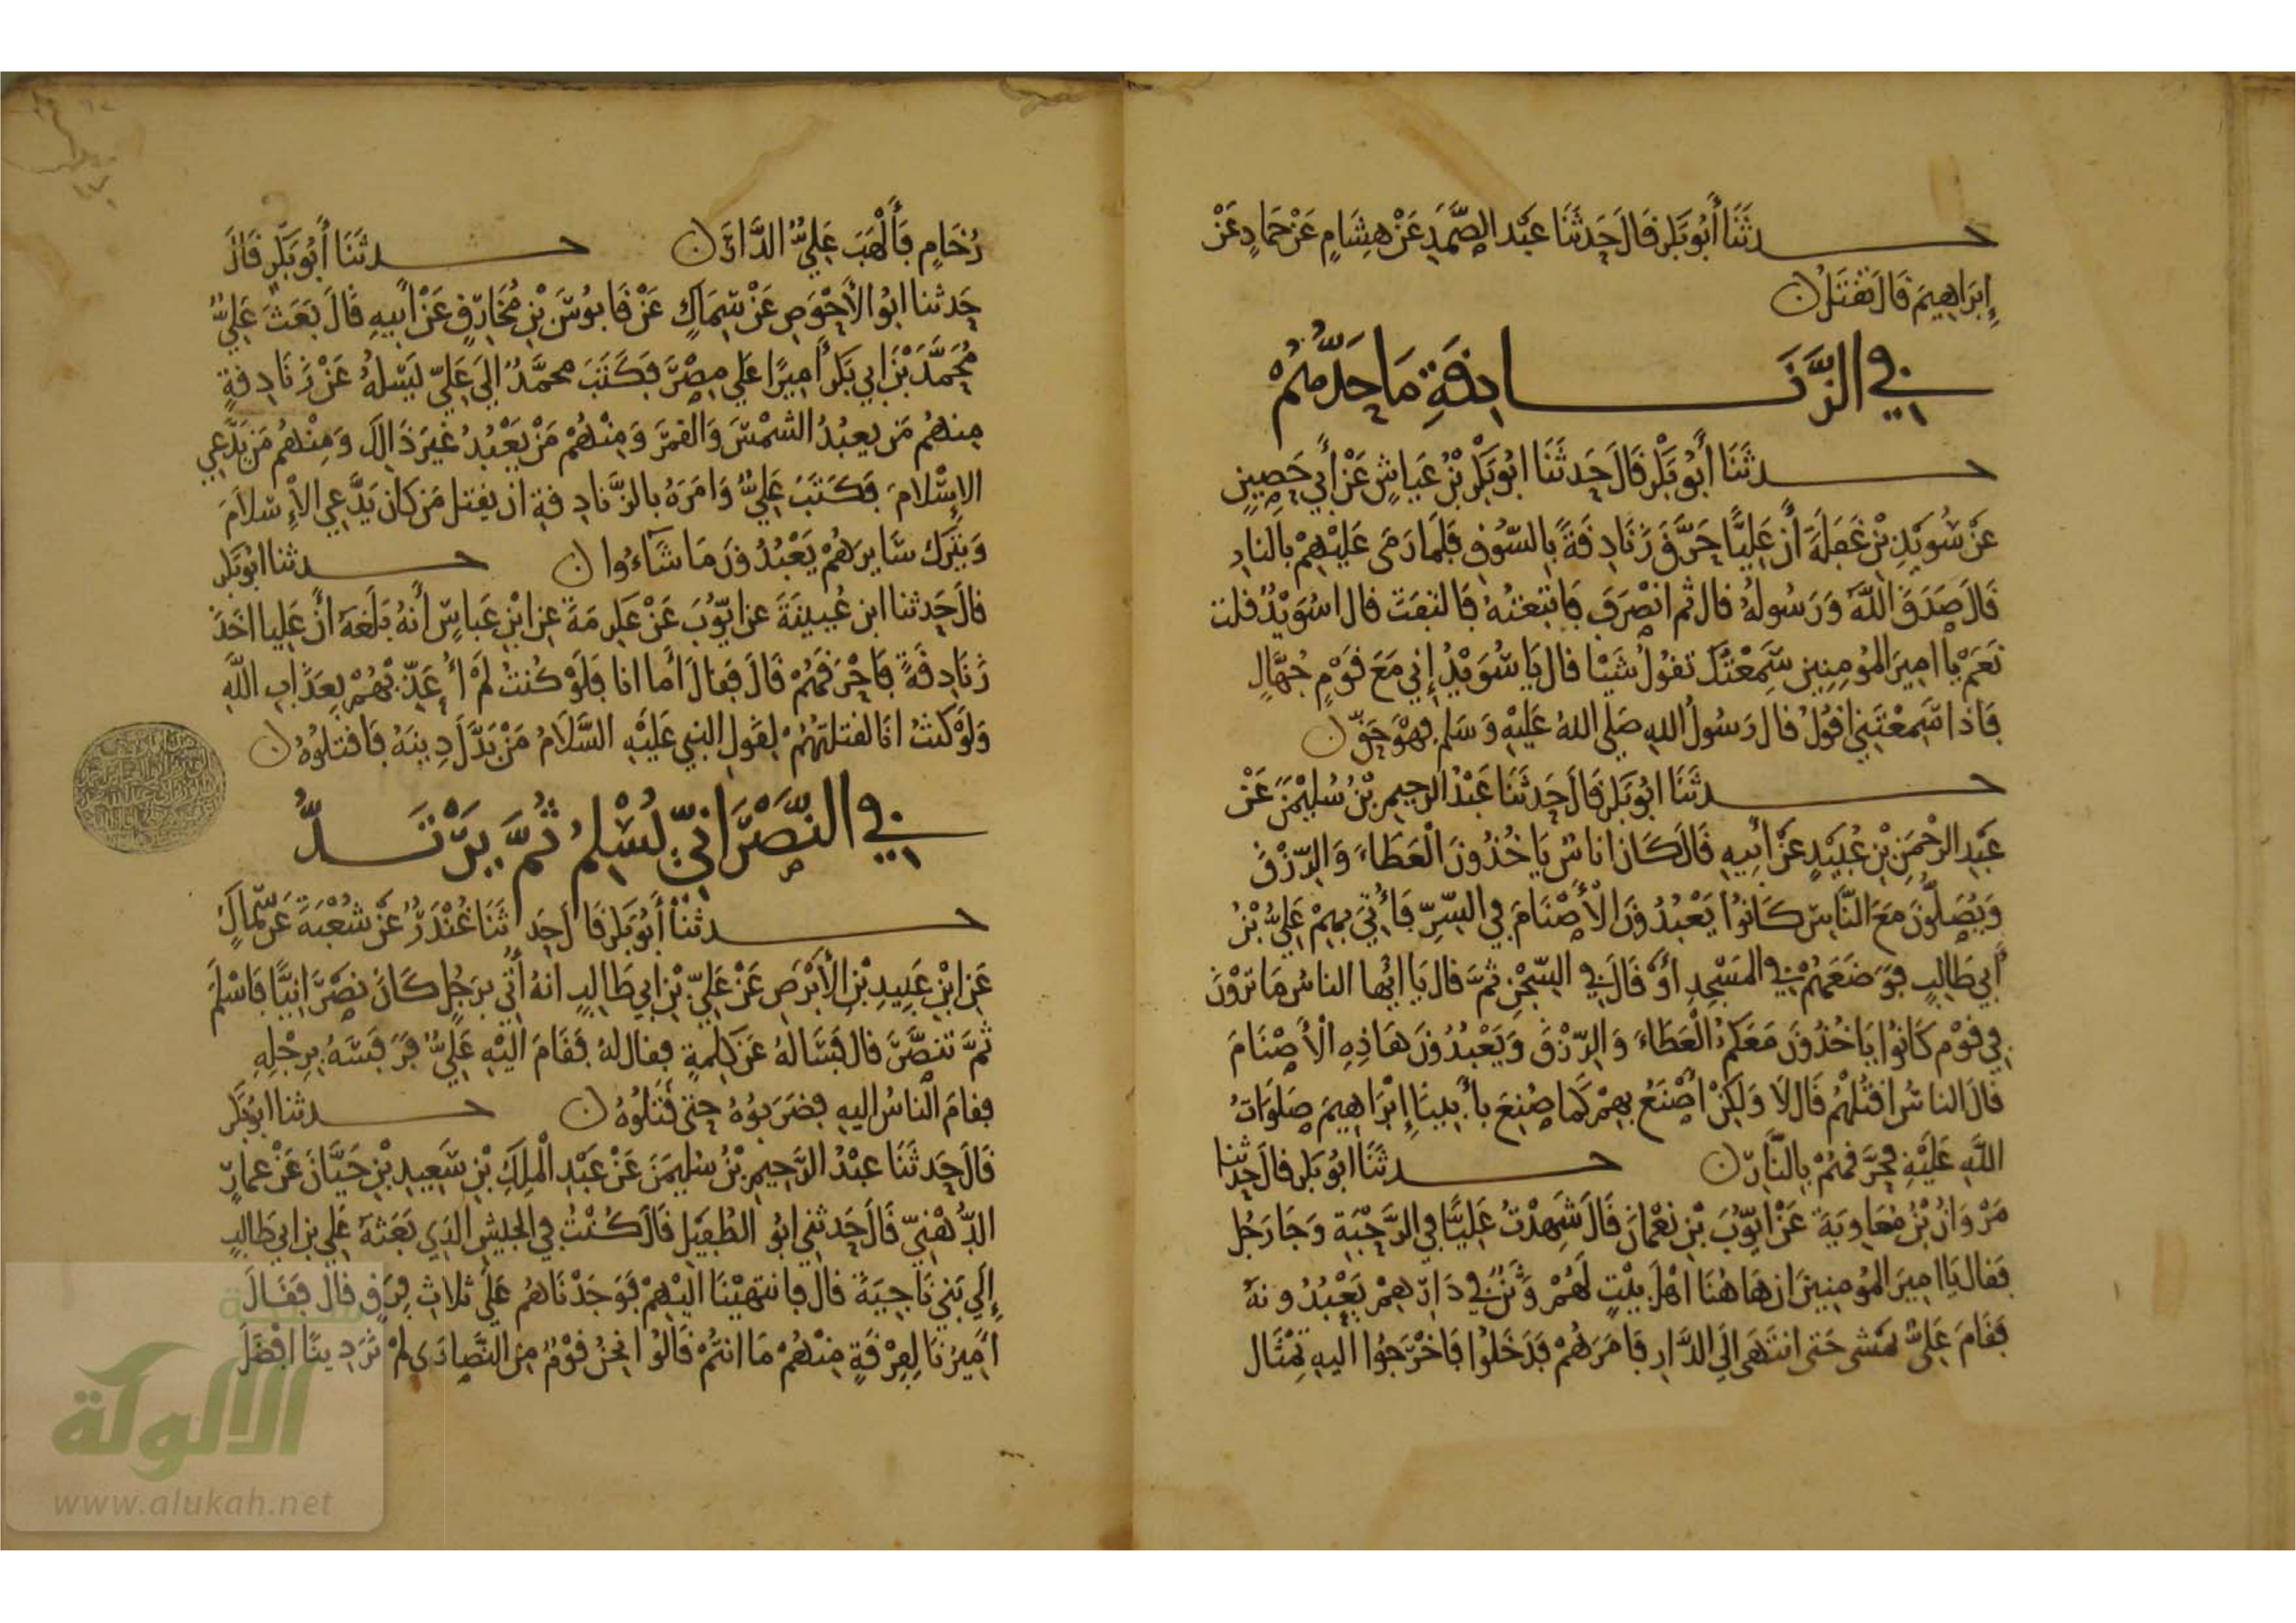 حدثنا أبو بكر قال حدثنا عبد الصمد عن هشام عن حماد عن
إبراهيم قال تقتل
في الزنادقة ما حدهم
حدثنا أبو بكر قال حدثنا ابو بكر بن عياش عن أبي حصين
عن سويد بن غفلة أن عليا حرق زنادقة بالسوق فلما رمى عليهم بالنار
قال صدق الله ورسوله قال ثم انصرف فاتبعته فالتفت قال اسويد قلت
نعم يا امير المومنين سمعتك تقول شيئا قال يا سويد إني مع قوم جهال
فاذا سمعتني اقول قال رسول الله صلى الله عليه وسلم فهو حق
حدثنا ابو بكر قال حدثنا عبد الرحيم بن سليمن عن
عبد الرحمن بن عبيد عن أبيه قال كان اناس ياخذون العطاء والرزق
ويصلون مع الناس كانوا يعبدون الأصنام في السر فأتي بهم علي بن
أبي طالب فوضعهم في المسجد أو قال في السجن ثم قال يا ايها الناس ما ترون
في قوم كانوا ياخذون معكم العطاء والرزق ويعبدون هاذه الأصنام
قال الناس اقتلهم قال لا ولكن أصنع بهم كما صنع بأبينا إبراهيم صلوات
الله عليه فحرقهم بالنار حدثنا ابو بكر قال حدثنا
مروان بن معاوية عن ايوب بن نعمان قال شهدت عليا في الرحبة وجا رجل
فقال يا امير المومنين ان هاهنا اهل بيت لهم وثن في دارهم يعبدونه
فقام علي يمشى حتى انتهى الى الدار فامرهم فدخلوا فاخرجوا اليه تمثال
رخام فألهب علي الدار حدثنا أبو بكر قال
حدثنا ابو الأحوص عن سماك عن قابوس بن مخارق عن أبيه قال بعث علي
محمد بن ابي بكر أميرا على مصر فكتب محمد إلى علي يسله عن زنادقة
منهم من يعبد الشمس والقمر ومنهم من يعبد غير ذالك ومنهم من يدعي
الإسلام فكتب علي وامره بالزنادقة ان يقتل من كان يدعي الإسلام
ويترك سايرهم يعبدون ما شاءوا حدثنا ابو بكر
قال حدثنا ابن عيينة عن ايوب عن عكرمة عن ابن عباس أنه بلغه أن عليا اخذ
زنادقة فاحرقهم قال فقال أما انا فلو كنت لم أعذبهم بعذاب الله
ولو كنت انا لقتلتهم لقول النبي عليه السلام من بدل دينه فاقتلوه
في النصراني يسلم ثم يرتد
حدثنا أبو بكر قال حدثنا غندر عن شعبة عن سماك
عن ابن عبيد بن الأبرص عن علي بن ابي طالب انه أتي برجل كان نصرانيا فاسلم
ثم تنصر قال فساله عن كلمة فقال له فقام اليه علي فرفسه برجله
فقام الناس اليه فضربوه حتى قتلوه حدثنا ابو بكر
قال حدثنا عبد الرحيم بن سليمن عن عبد الملك بن سعيد بن حيان عن عمار
الدهني قال حدثني ابو الطفيل قال كنت في الجيش الذي بعثه علي بن ابي طالب
إلى بني ناجية قال فانتهينا اليهم فوجدناهم على ثلاث فرق قال فقال
أميرنا لفرقة منهم ما انتم قالوا نحن قوم من النصارى لم نر دينا افضل
الالوكة
www.alukah.net